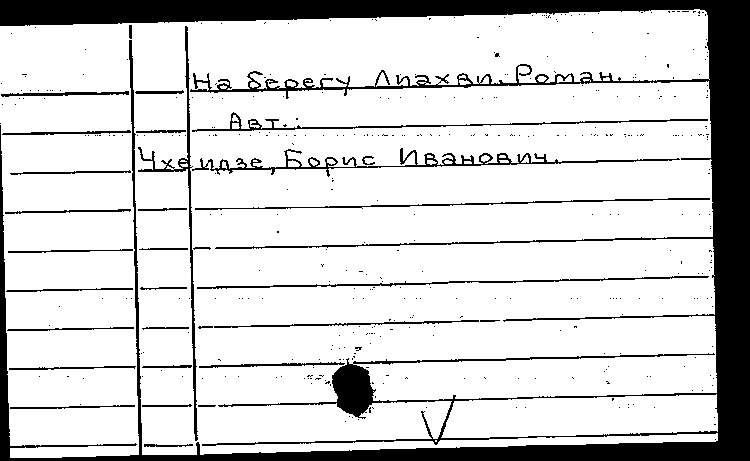 На берегу Лиахви. Роман.
Авт.:
Чхеидзе, Борис Иванович.